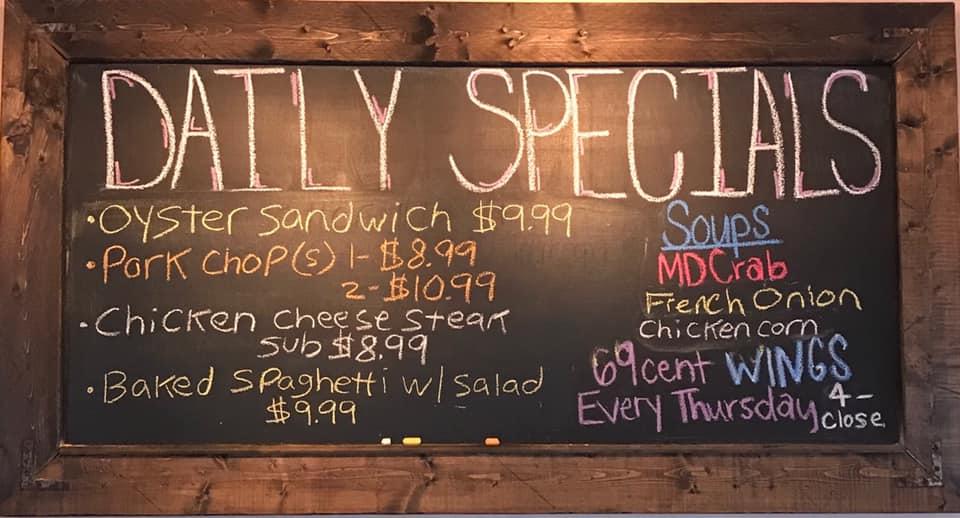 DAILY SPECIALS
• Oyster Sandwich $9.99
• Pork Chop(s) 1- $8.99
2- $10.99
• Chicken Cheese Steak
Sub $8.99
• Baked Spaghetti w/ Salad
$9.99
Soups
MD Crab
French Onion
Chicken corn
69 cent WINGS
Every Thursday 4-
close